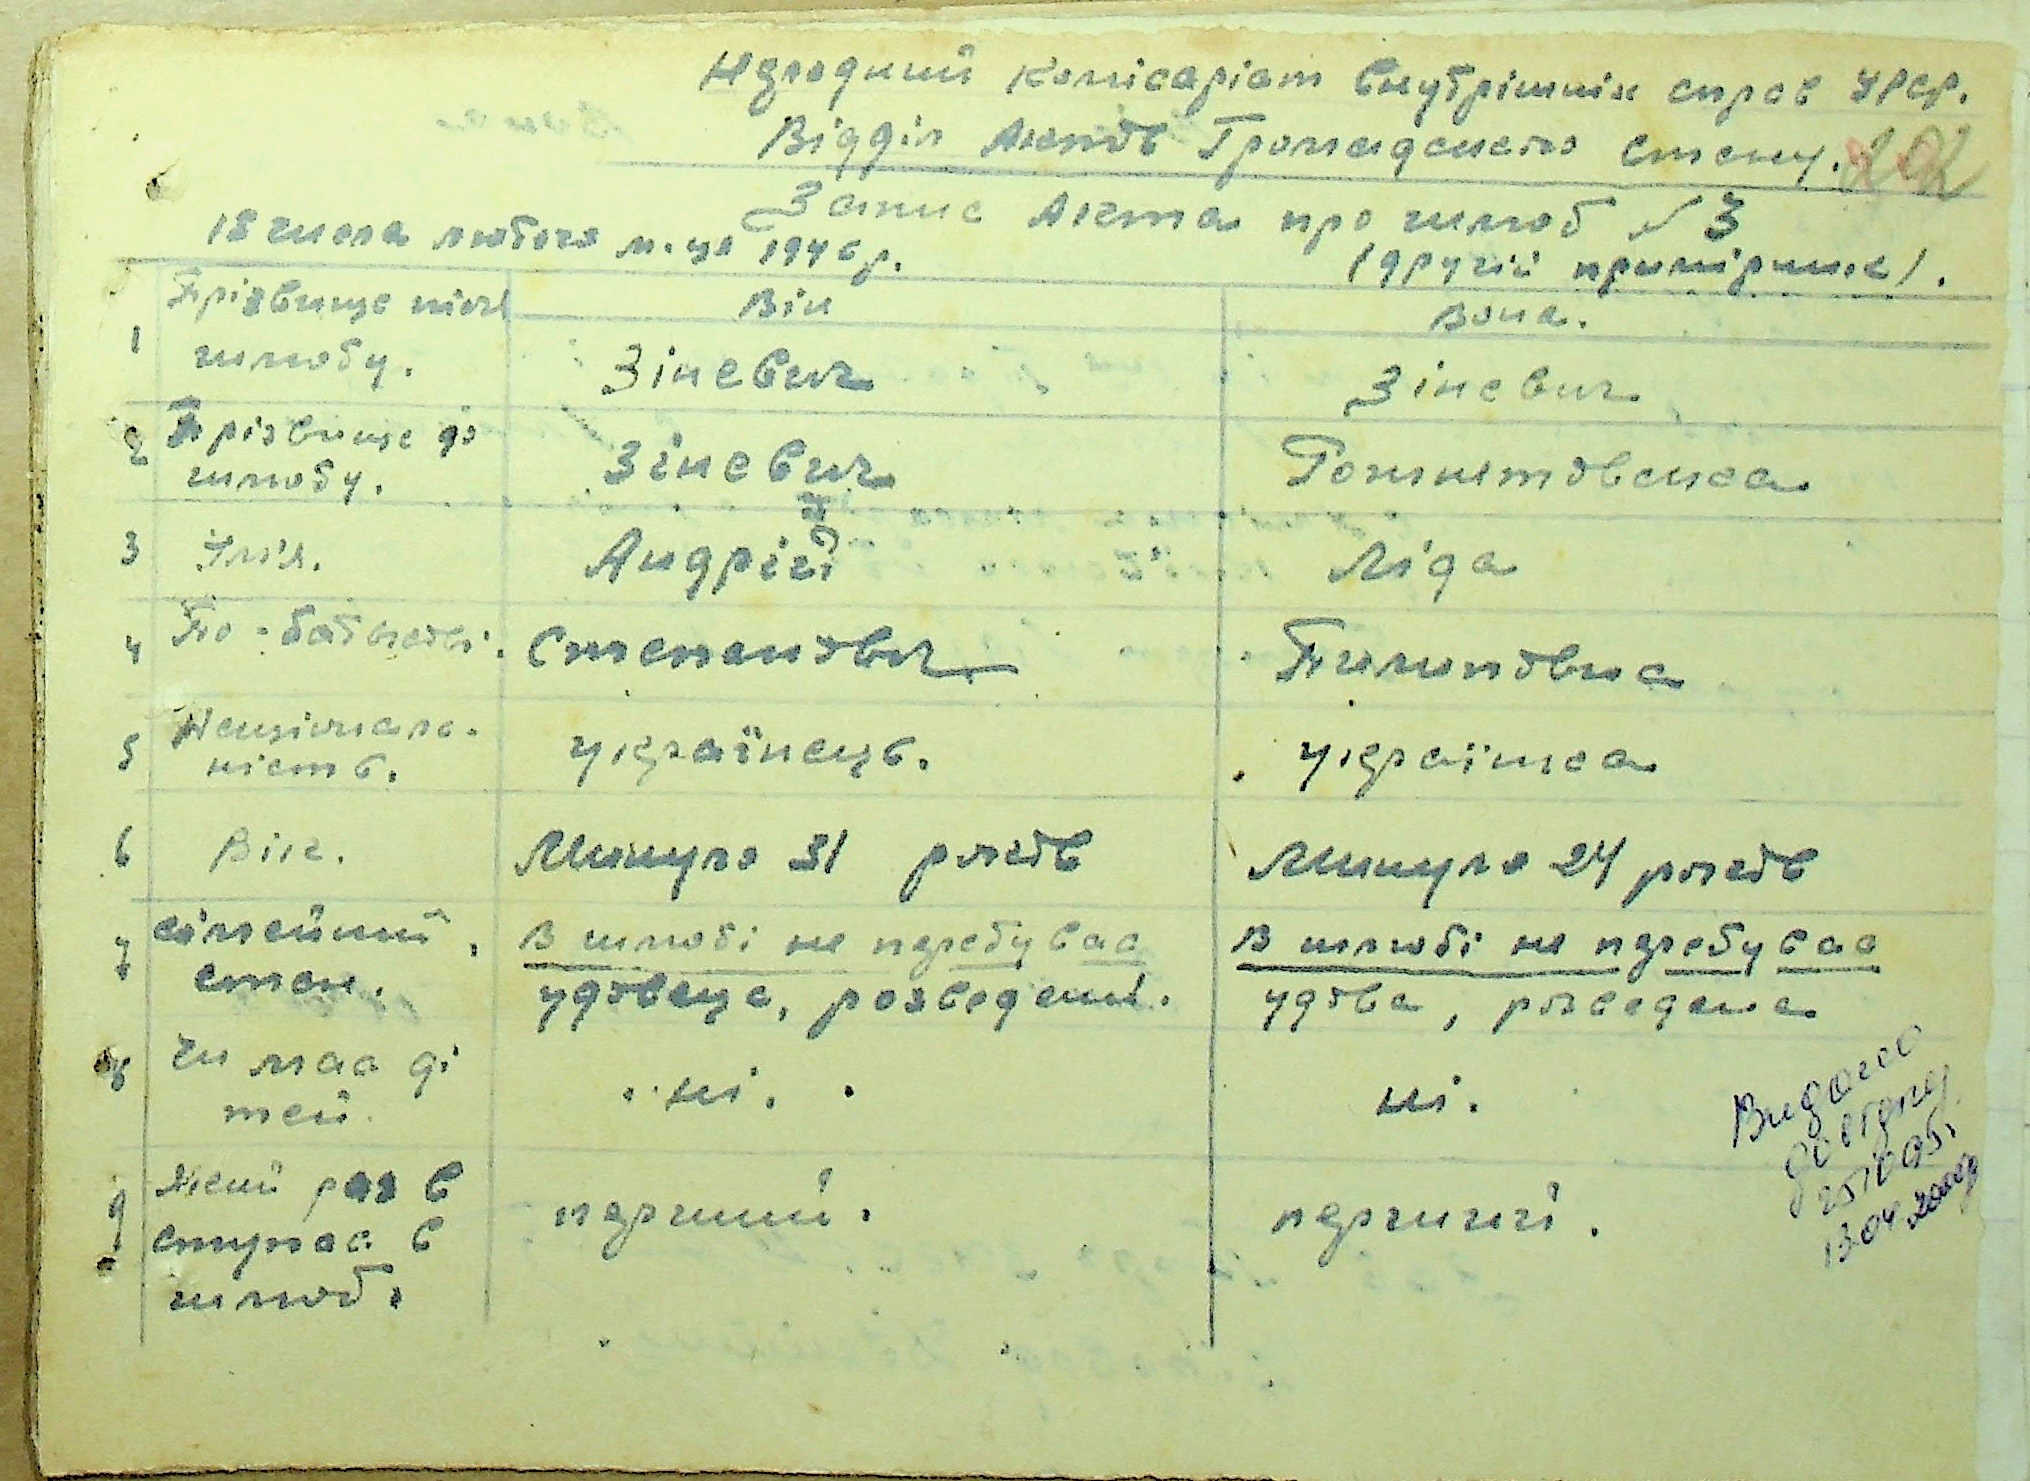 Народний комісаріат внутрішніх справ УРСР.
Відділ Актів Громадського стану. 202
Запис Акта про шлюб № 3
18 числа лютого м-ця 1946 р.
(другий примірник).
Він
Вона.
1 Прізвище після шлюбу.
Зіневич
Зіневич
2 Прізвище до шлюбу.
Зіневич
3 Ім'я.
Андрій
Ліда
4 По-батькові.
Степанович
Пилиповна
5 Національність.
українець.
українка
6 Вік.
Минуло 31 років
Минуло 24 років
7 сімейний стан.
В шлюбі не перебуває
удовець, розведений.
В шлюбі не перебуває
удова, розведена
8 Чи має дітей.
ні.
ні.
9 Який раз вступає в шлюб.
перший.
перший.
Видано
довідку
13.04